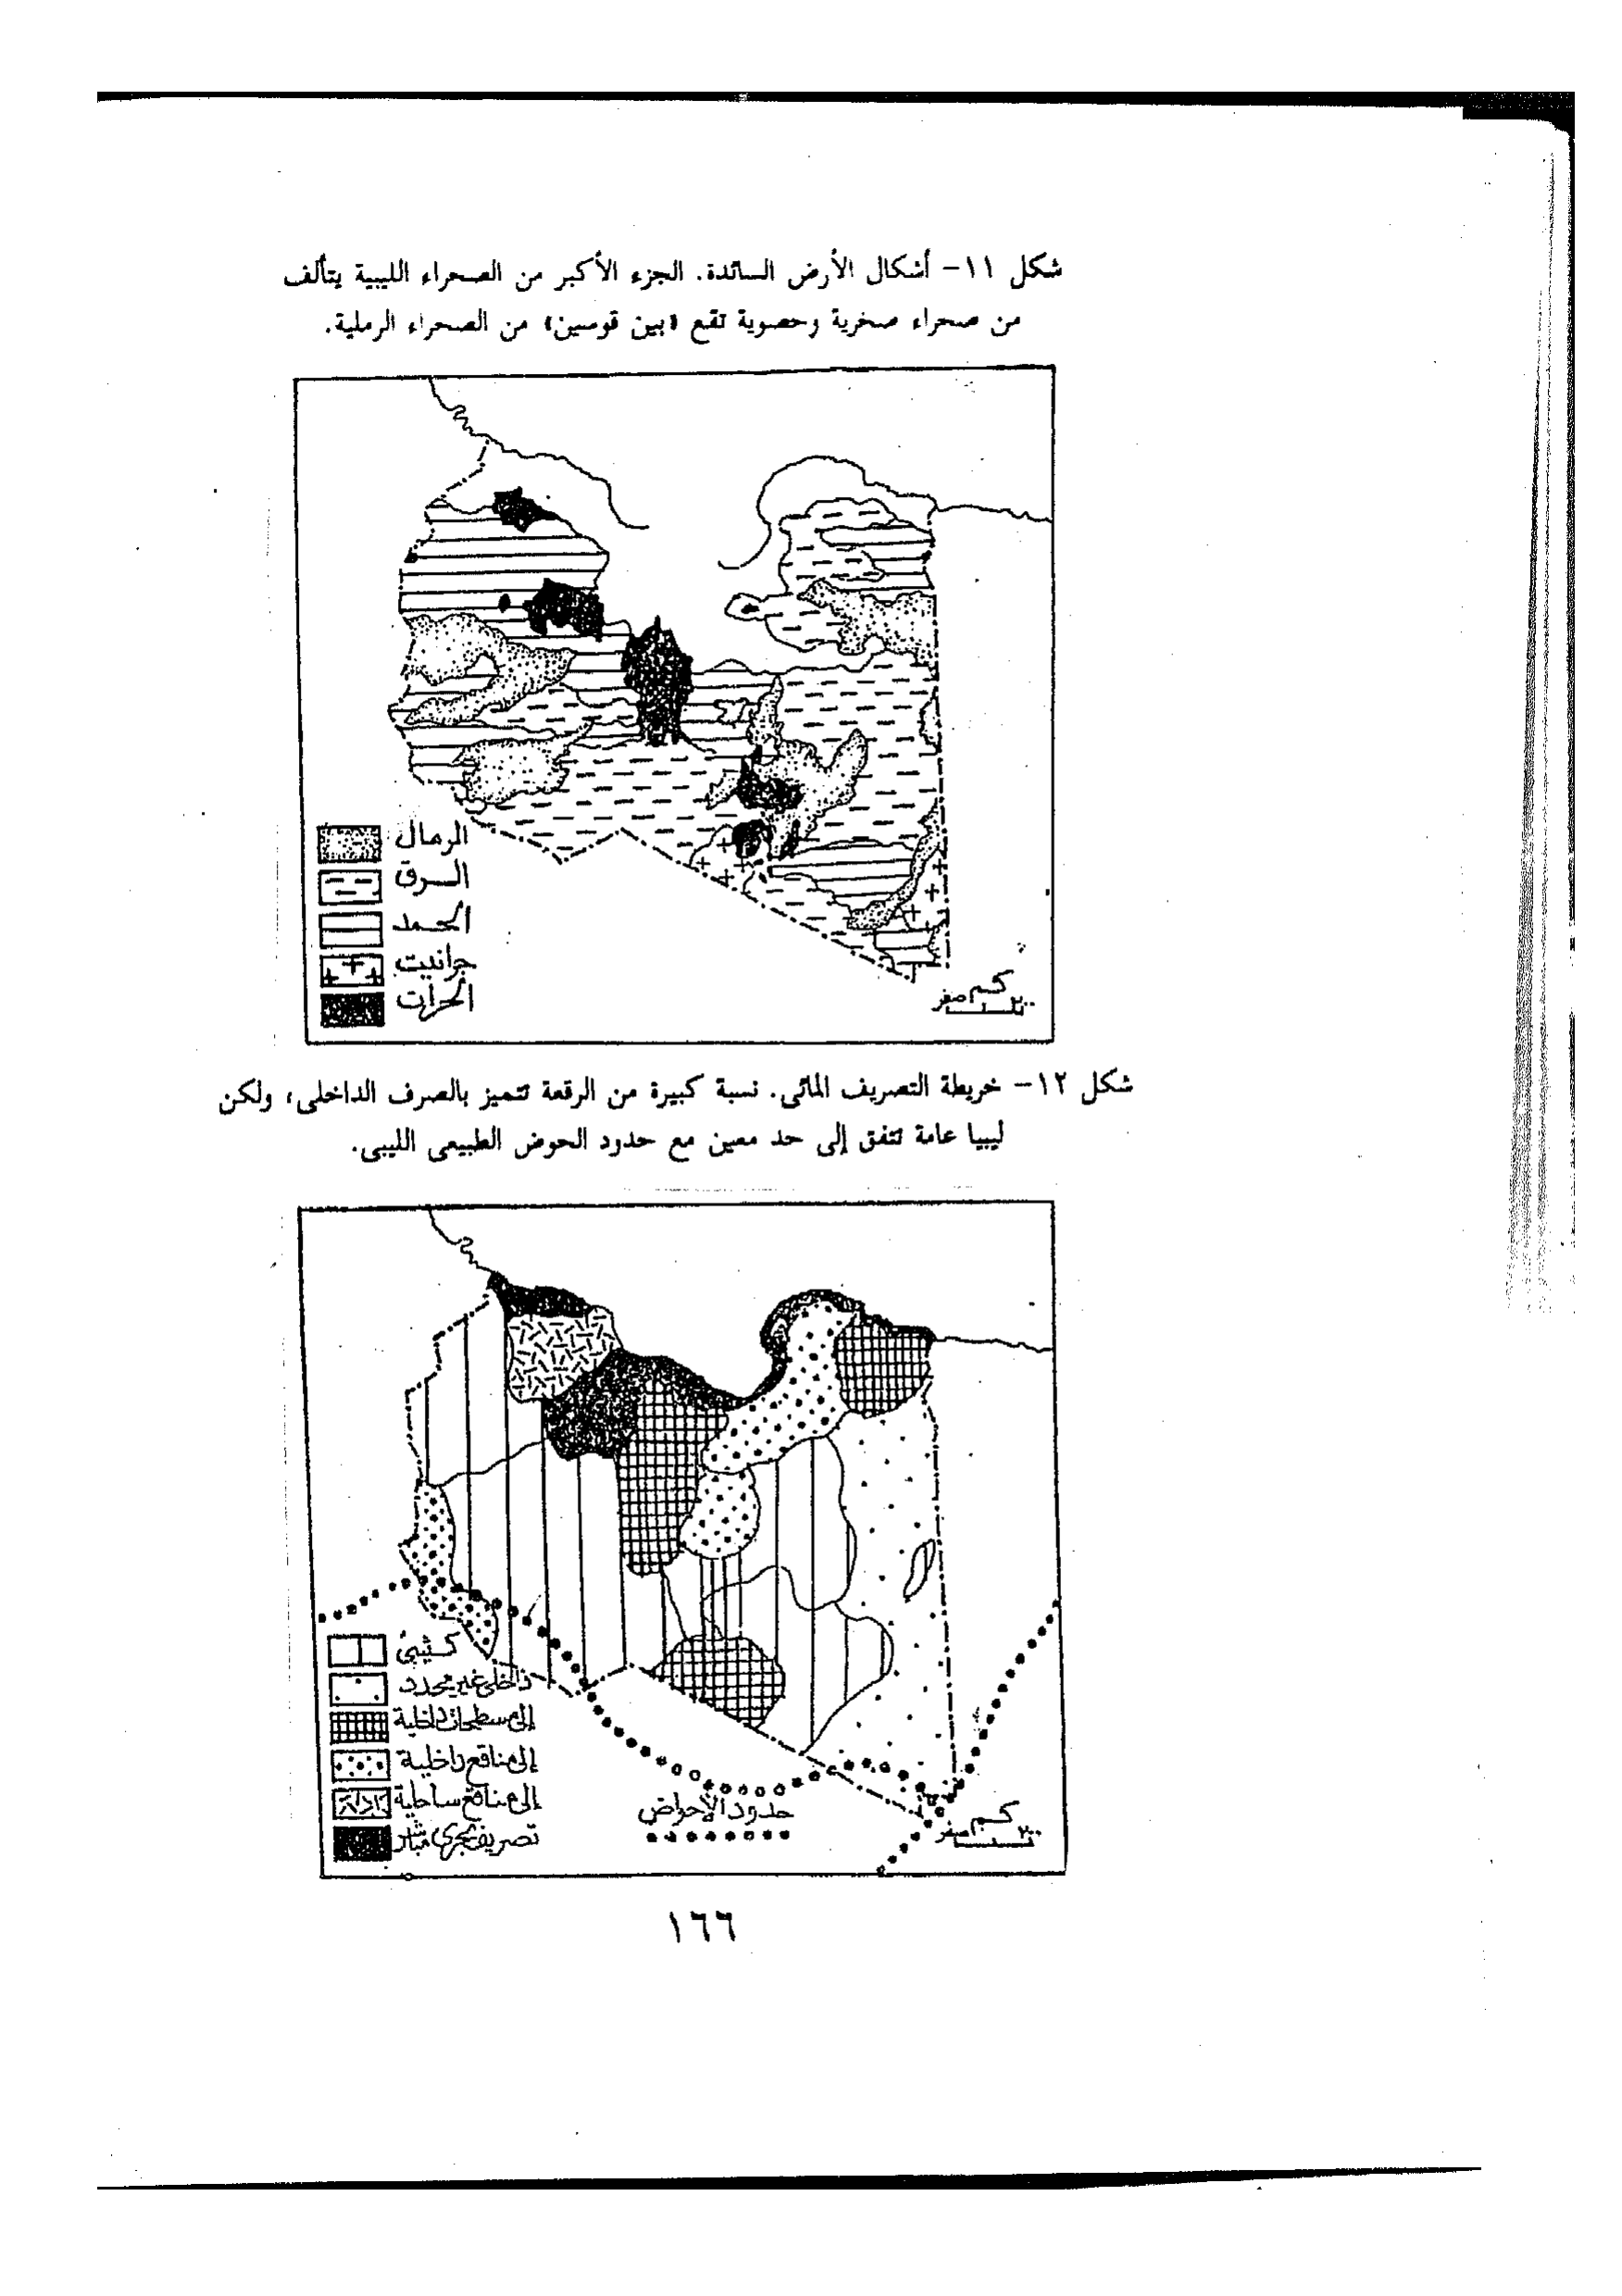 شكل ١١- أشكال الأرض السائدة. الجزء الأكبر من الصحراء الليبية يتألف
من صحراء صخرية وحصوية تقع «بين قوسين» من الصحراء الرملية.
الرمال
السرق
الحمد
جرانيت
الحرات
كم
صفر ٢٠٠
شكل ١٢- خريطة التصريف المائى. نسبة كبيرة من الرقعة تتميز بالصرف الداخلى، ولكن
ليبيا عامة تتفق إلى حد معين مع حدود الحوض الطبيعى الليبى.
كثيبى
داخلى غير محدد
إلى مسطحات داخلية
إلى مناقع داخلية
إلى مناقع ساحلية
تصريف بحرى مباشر
حدود الأحواض
كم
صفر ٢٠٠
١٦٦